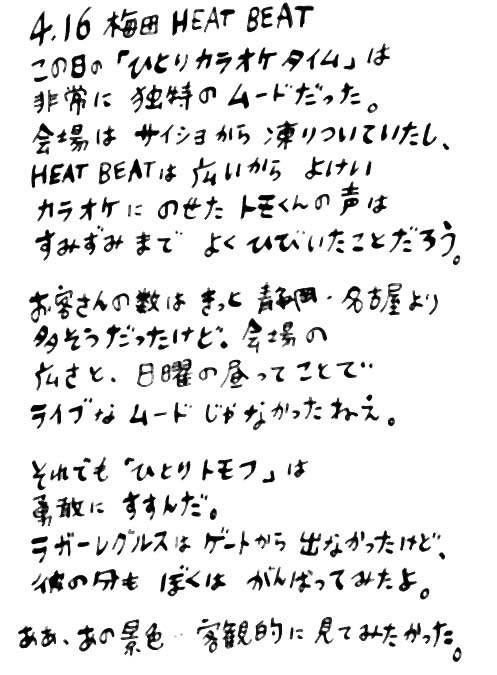 4.16 梅田 HEAT BEAT
この日の「ひとりカラオケタイム」は
非常に 独特の ムードだった。
会場は サイショから 凍りついていたし、
HEAT BEATは 広いから よけい
カラオケに のせた トモくんの 声は
すみずみまで よく ひびいたことだろう。
お客さんの数は きっと 静岡・名古屋より
多そうだったけど。会場の
広さと、日曜の昼って ことで
ライブな ムード じゃなかったねえ。
それでも「ひとりトモフ」は
勇敢に すすんだ。
ラガーレグルスは ゲートから 出なかったけど、
彼の分も ぼくは がんばってみたよ。
ああ、あの景色‥客観的に 見てみたかった。